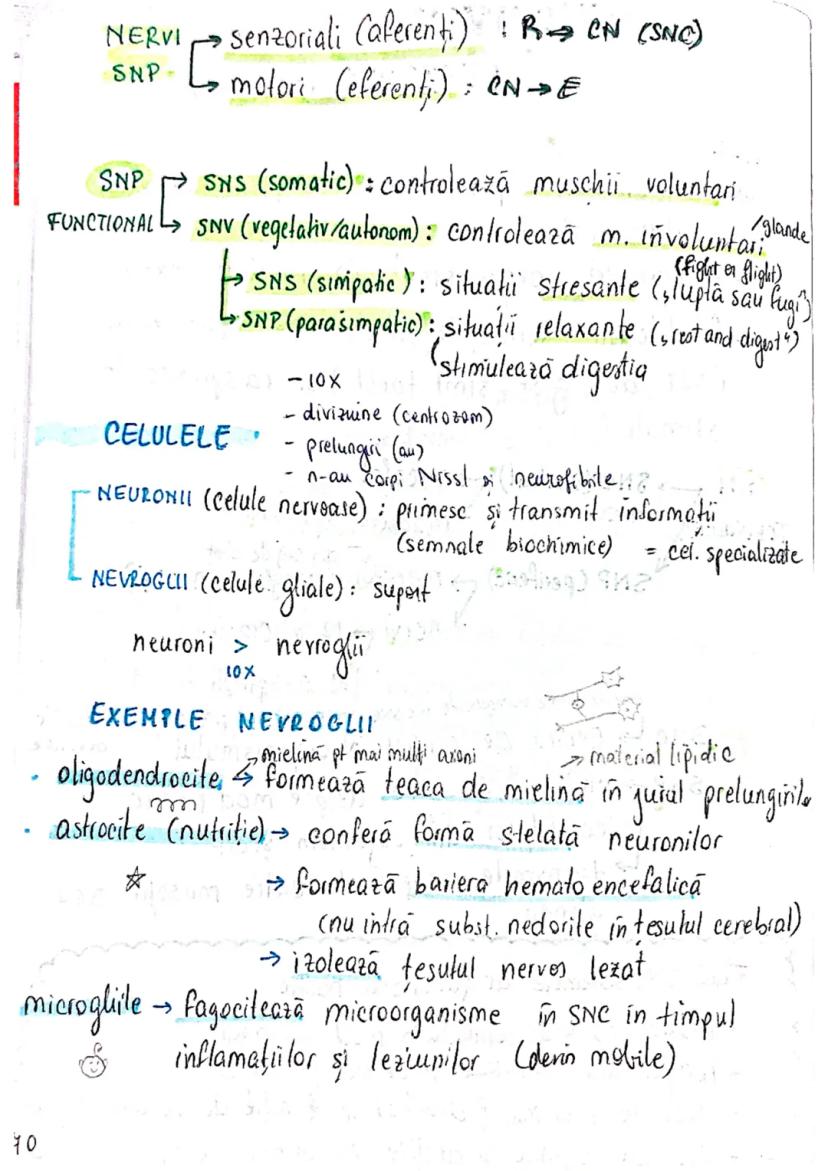 NERVI → senzoriali (aferenți) : R → CN (SNC)
SNP → motori (eferenți) : CN → E
SNP → SNS (somatic) : controlează muschii voluntari
FUNCTIONAL → SNV (vegetativ/autonom) : controlează m. involuntari /glande
(fight or flight)
→ SNS (simpatic) : situatii stresante („luptă sau fugi")
→ SNP (parasimpatic) : situații relaxante („rest and digest")
(stimulează digestia
- 10X
- diviziune (centrozom)
CELULELE
- prelungiri (au)
- n-au corpi Nissl și neurofibile
NEURONII (celule nervoase) : primesc și transmit informatii
(semnale biochimice) = cel. specializate
NEVROGLII (celule gliale) : suport
neuroni > nevroglii
10X
EXEMPLE NEVROGLII
→ mielină pt mai mulți axoni → material lipidic
• oligodendrocite → formează teaca de mielină în jurul prelungirile
• astrocite (nutriție) → conferă formă stelată neuronilor
→ formează bariera hemato encefalică
(nu intră subst. nedorite în țesutul cerebral)
→ izolează țesutul nervos lezat
microgliile → fagocitează microorganisme în SNC in timpul
inflamațiilor și leziunilor (devin mobile)
70